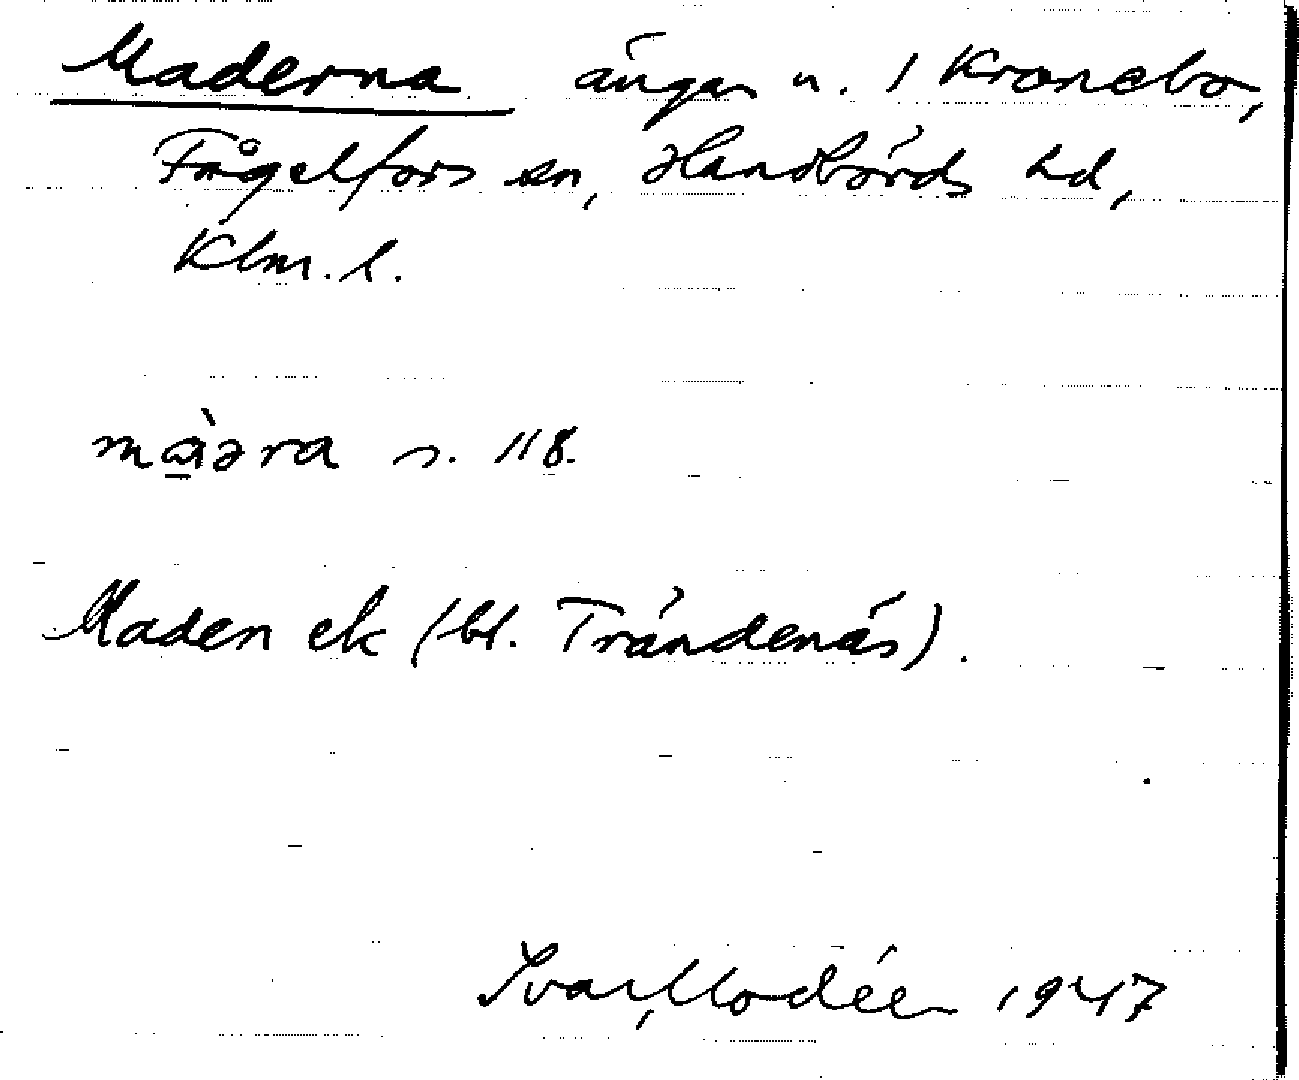 Maderna ängar u. 1 Kronebo,
Fågelfors sn, Handbörds hd,
Klm. l.
mɑ̀əra s. 118.
Maden ek (bl. Trändenäs).
Ivar Modéer 1947